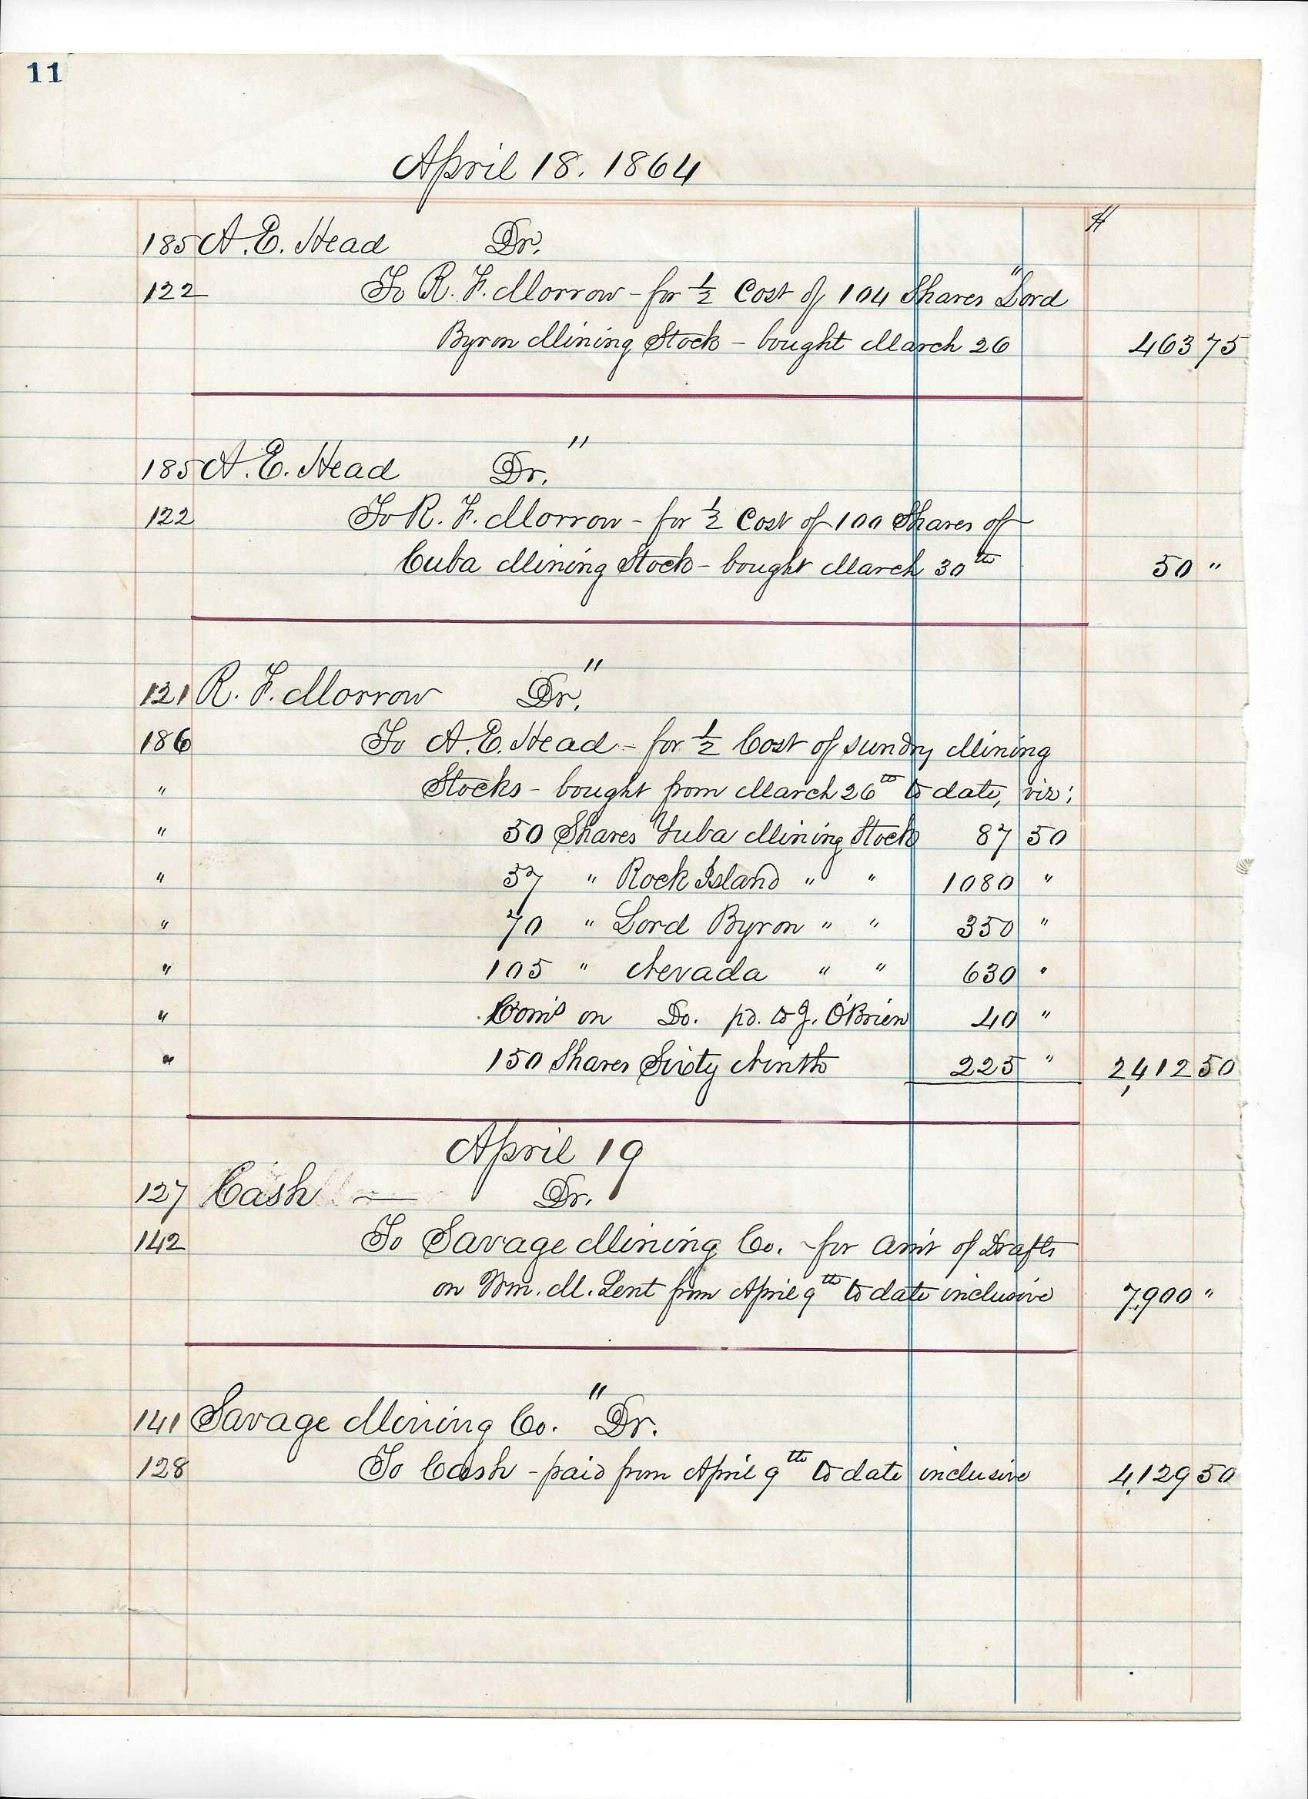 11
April 18. 1864
$
185 A. E. Head Dr.
122 To R. F. Morrow - for ½ Cost of 104 Shares "Lord
Byron Mining Stock - bought March 26 463 75
"
185 A. E. Head Dr.
122 To R. F. Morrow - for ½ Cost of 100 Shares of
Cuba Mining Stock - bought March 30th 50 "
"
121 R. F. Morrow Dr.
186 To A. E. Head - for ½ Cost of sundry Mining
" Stocks - bought from March 26th to date, viz:
" 50 Shares Yuba Mining Stock 87 50
" 37 " Rock Island " " 1080 "
" 70 " Lord Byron " " 350 "
" 105 " Nevada " " 630 "
" Com's on Do. pd. to J. O'Brien 40 "
" 150 Shares Sixty Ninth 225 " 2,412 50
April 19
127 Cash — Dr.
142 To Savage Mining Co. - for Am't of Drafts
on Wm. M. Lent from April 9th to date inclusive 7,900 "
"
141 Savage Mining Co. Dr.
128 To Cash - paid from April 9th to date inclusive 4,129 50